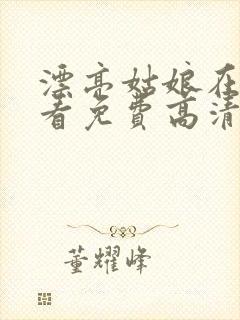 漂亮姑娘在
看免费高清
董耀峰